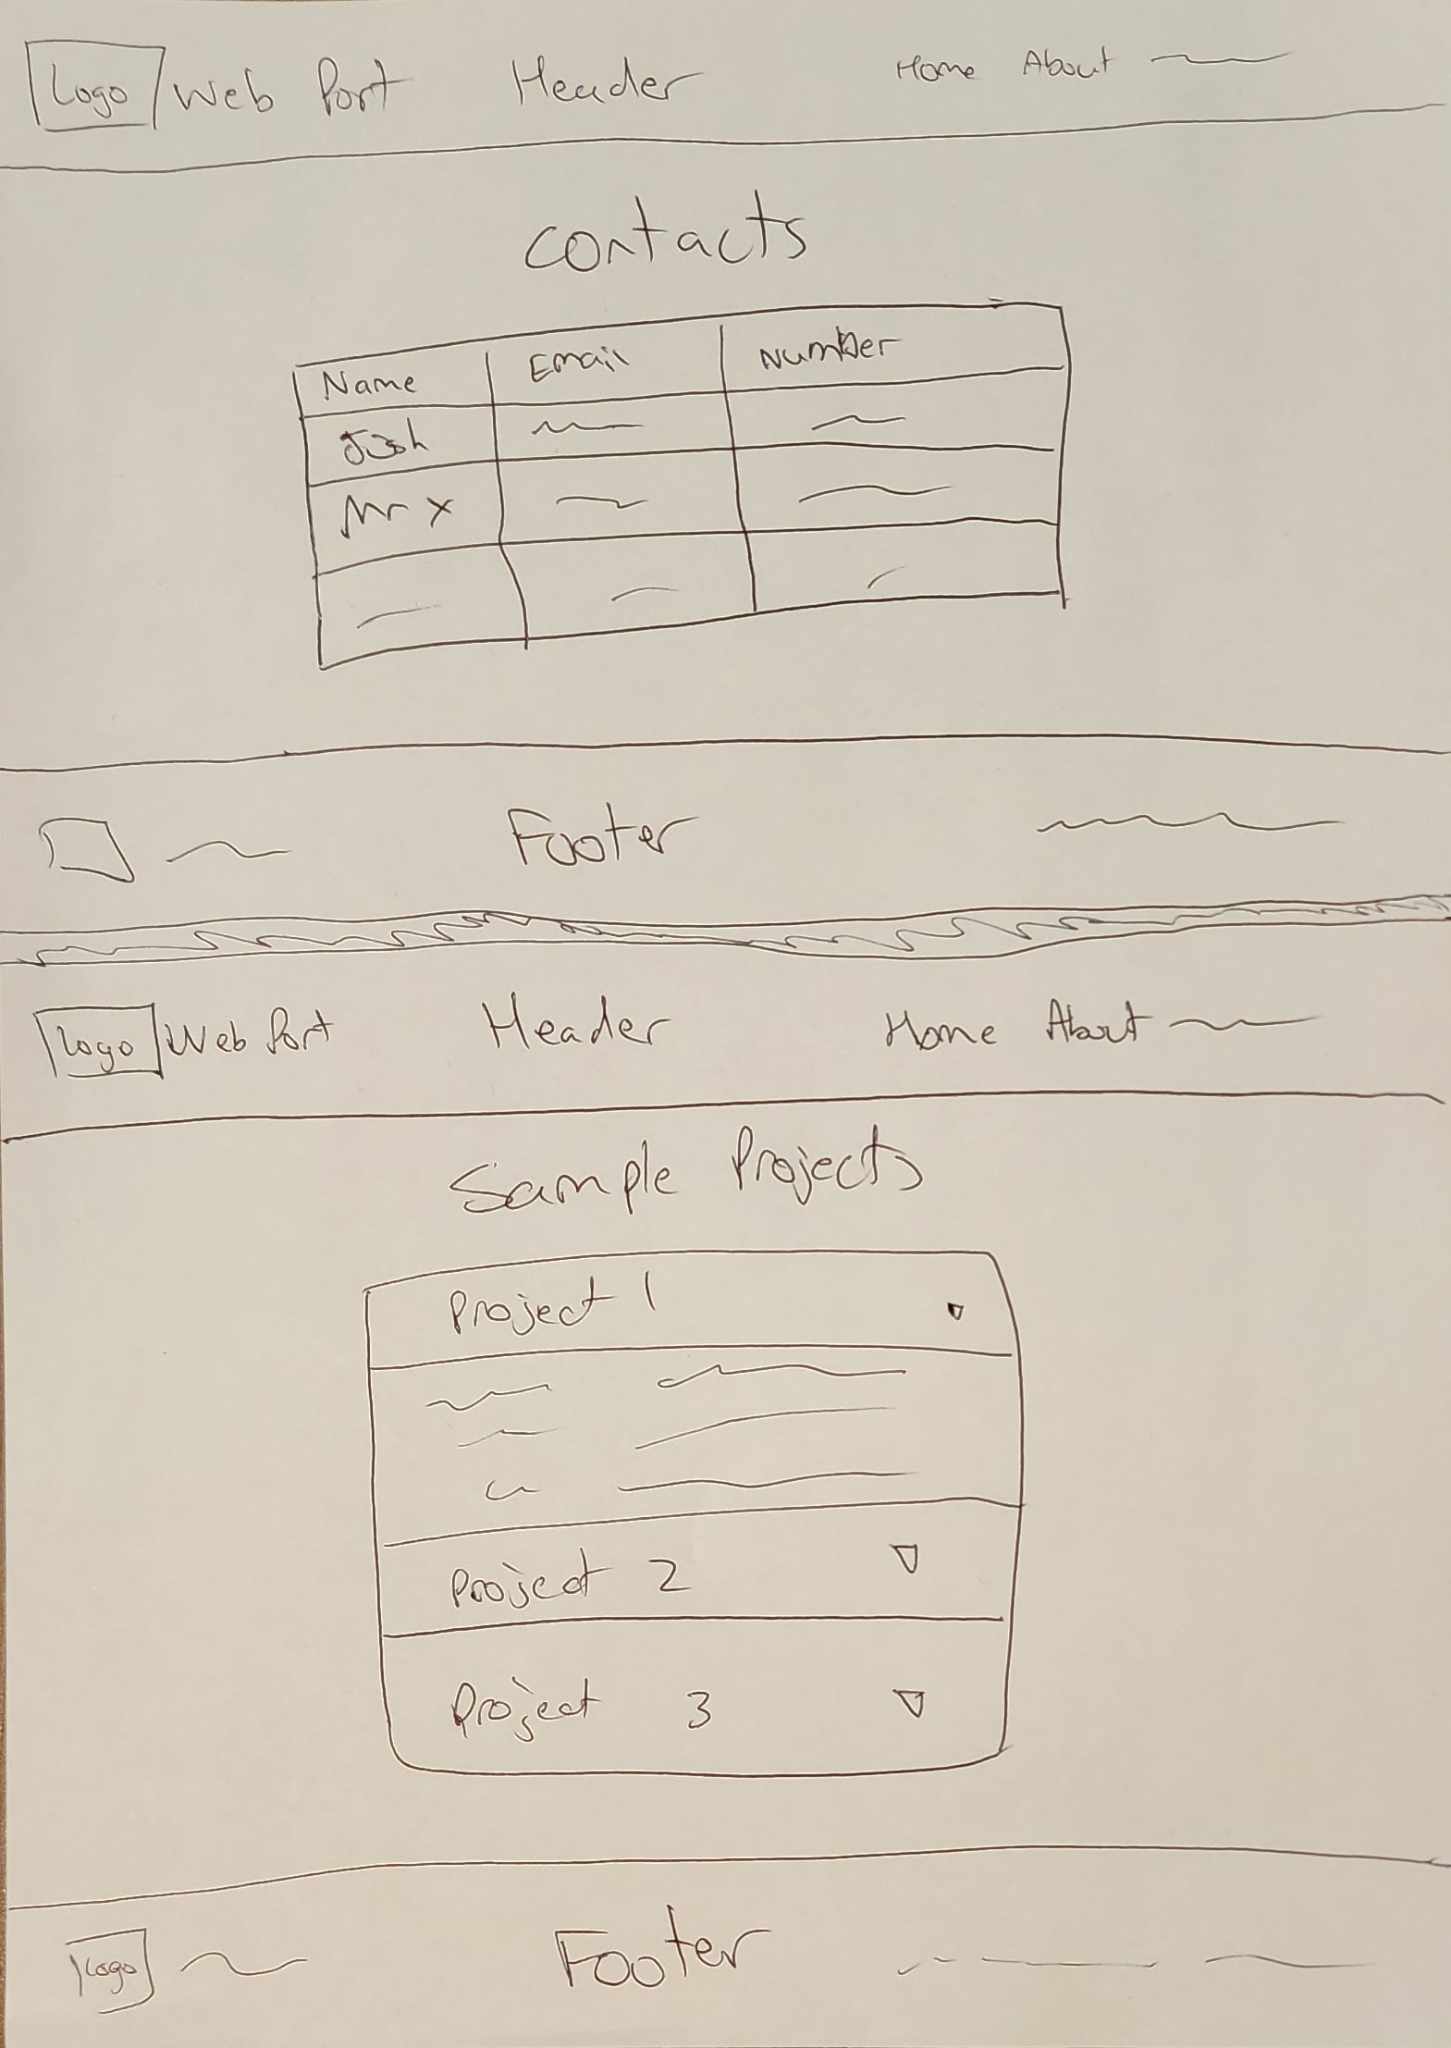 Logo Web Port Header Home About
Contacts
Name Email Number
Josh
Mr X
Footer
Logo Web Port Header Home About
Sample Projects
Project 1
Project 2
Project 3
Logo Footer